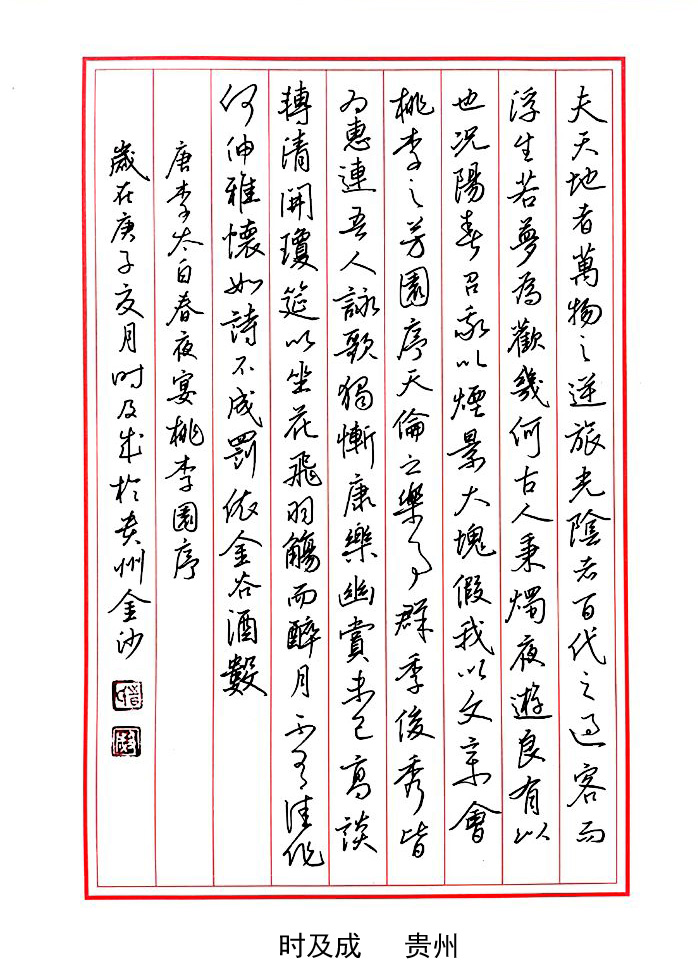 夫天地者萬物之逆旅光陰者百代之過客而
浮生若夢為歡幾何古人秉燭夜遊良有以
也況陽春召我以煙景大塊假我以文章會
桃李之芳園序天倫之樂事群季俊秀皆
為惠連吾人詠歌獨慚康樂幽賞未已高談
轉清開瓊筵以坐花飛羽觴而醉月不有佳作
何伸雅懷如詩不成罰依金谷酒數
唐李太白春夜宴桃李園序
歲在庚子夜月时及成於贵州金沙
时及成 贵州